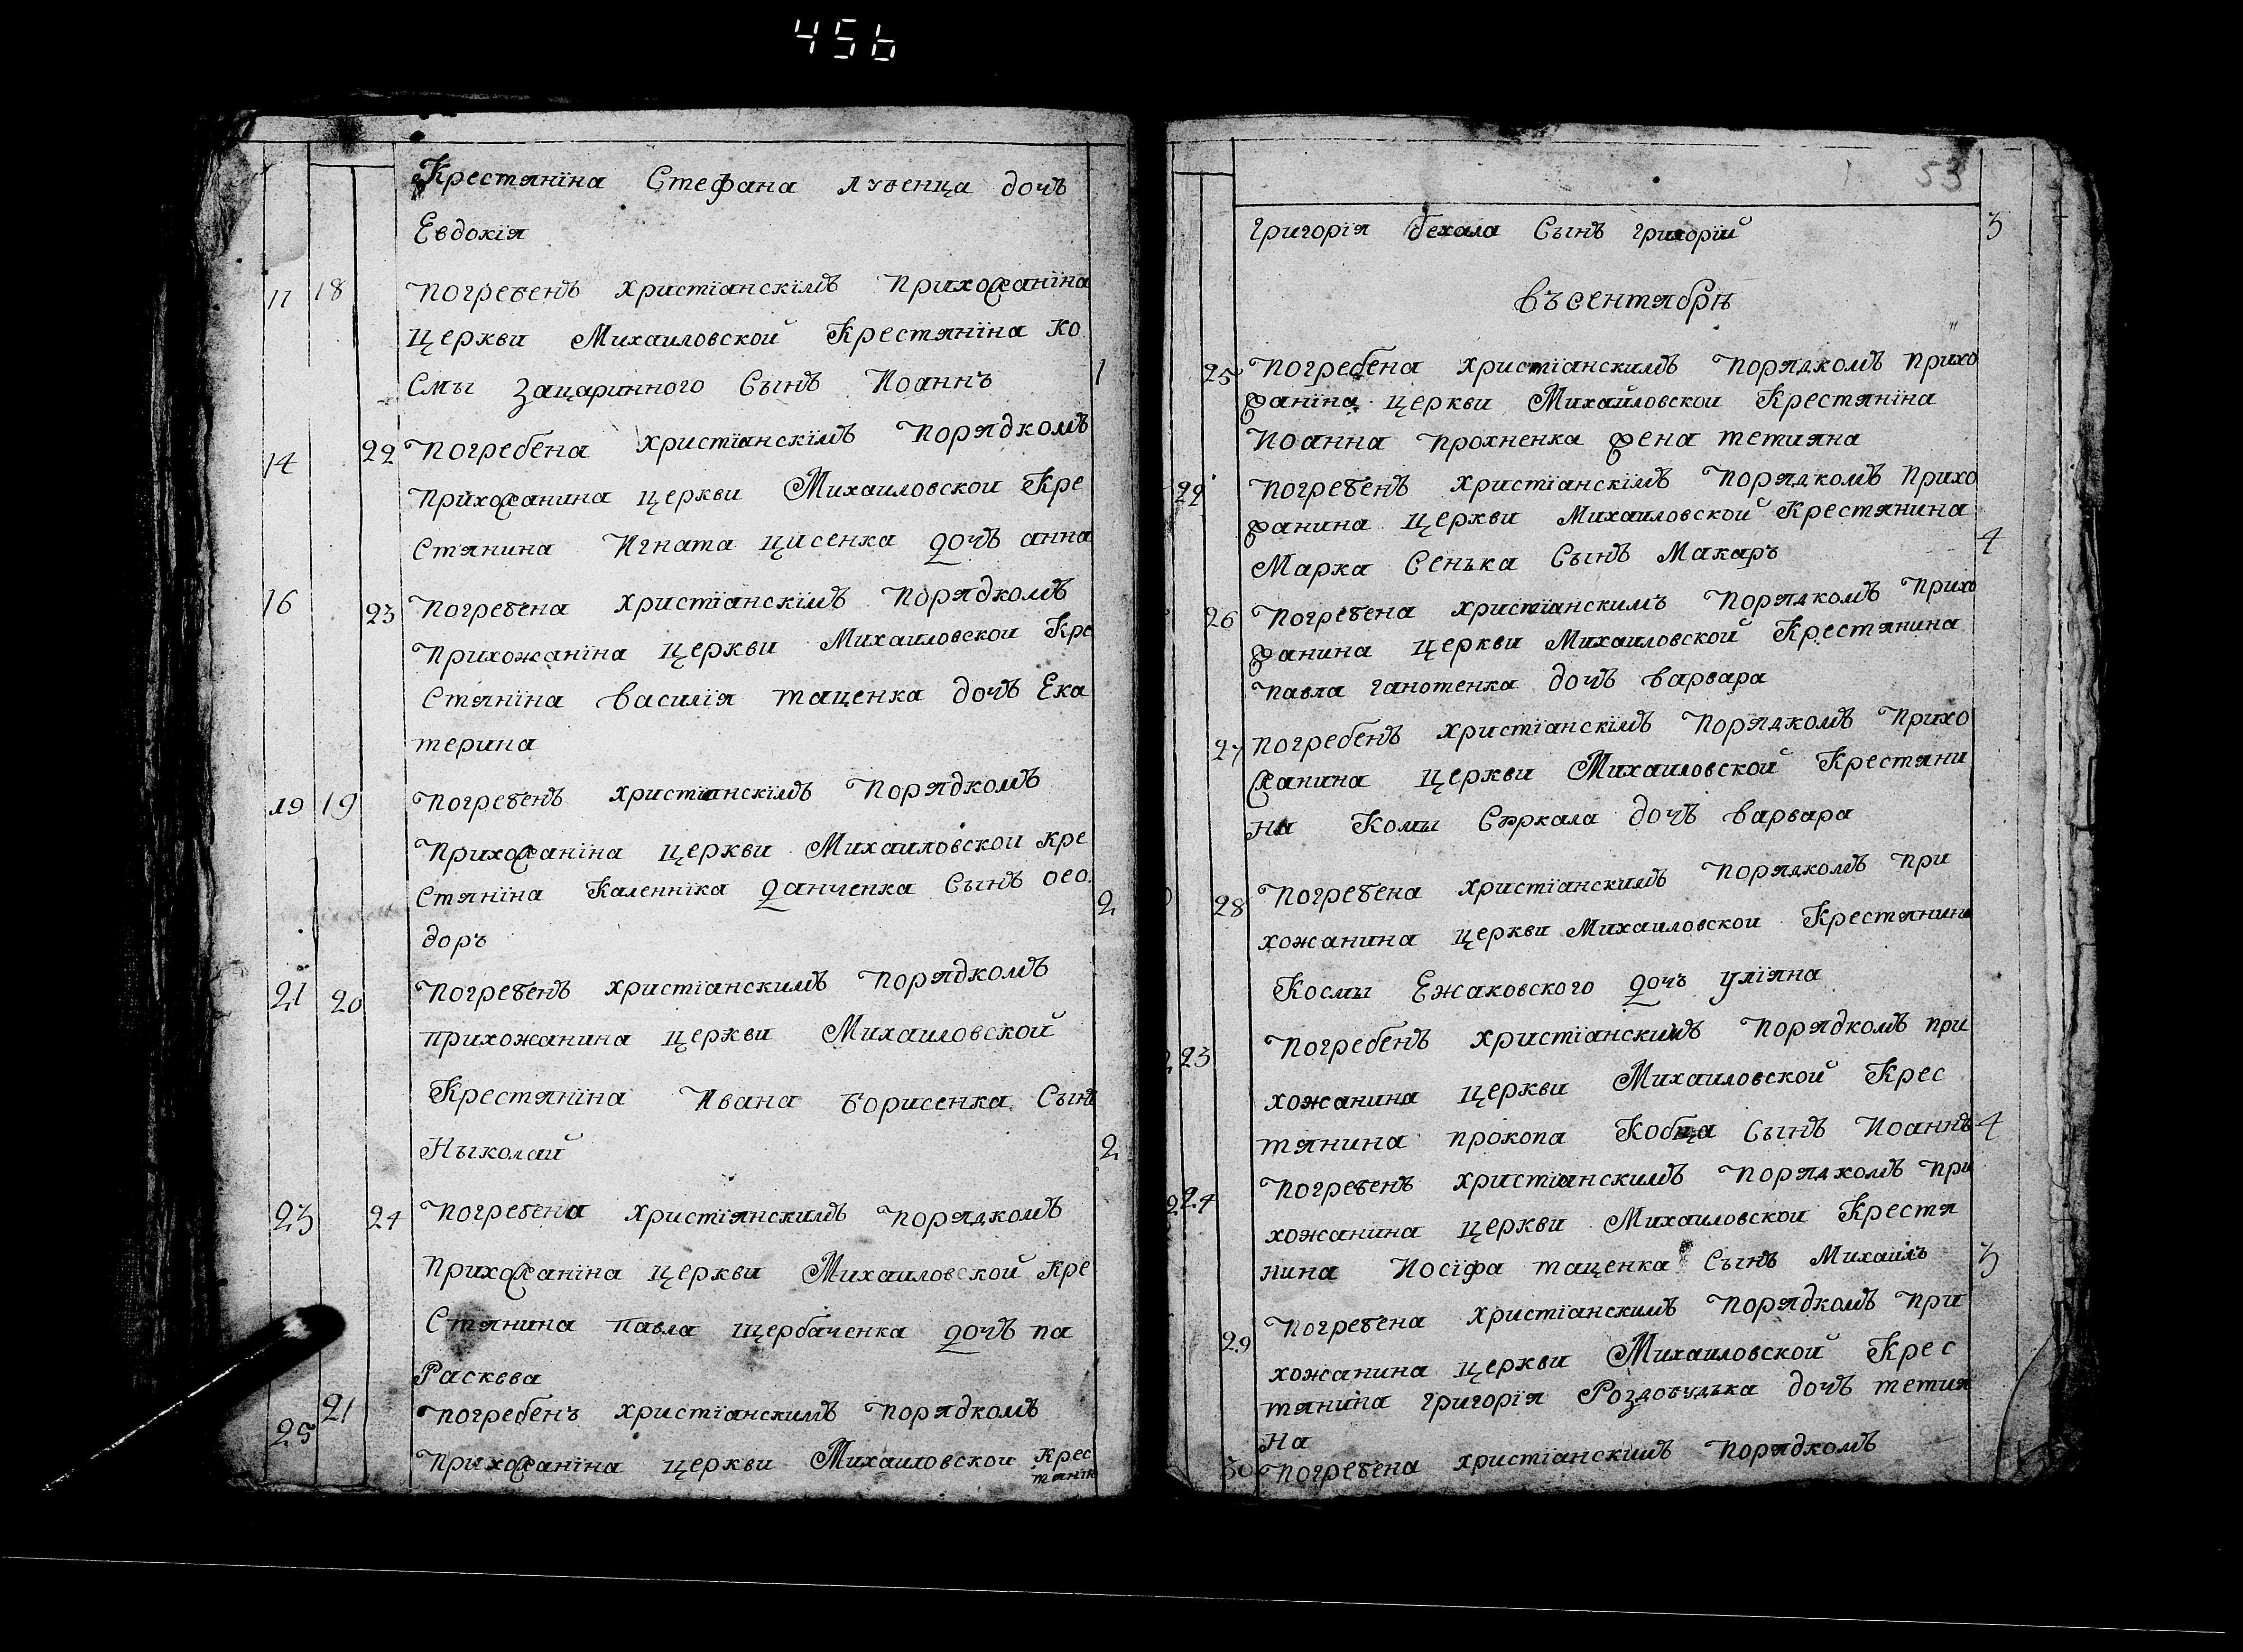 456
Крестянїна Стефана лубенца дочъ
Евдокія
11 18 Погребенъ христіанскїмъ Прихожанїна
церкви Михаиловской Крестянїна Ко
смы Зацаринного Сынъ Иоаннъ 1
14 22 Погребена христїанскїмъ Порядкомъ
Прихожанина церкви Михаиловскои Кре
Стянина Игната Цисенка дочъ анна
16 23 Погребена христїанскїмъ Порядкомъ
Прихожаніна церкви Михаиловскои Кре
Стянїна василїя таценка дочъ Ека
терина
19 19 Погребенъ христіанскїмъ Порядкомъ
Прихожаніна церкви Михаиловскои кре
Стянїна Каленніка данченка Сынъ Ѳео
доръ 2
21 20 Погребенъ христіанскимъ Порядкомъ
прихожанина церкви Михаиловской
Крестянїна Ивана борисенка Сынъ
Ныколай 2
23 24 Погребена христіянскимъ Порядкомъ
Прихожаніна церкви Михаиловской кре
Стянина павла щербаченка дочъ па
Расквва
25 21 погребенъ христіанскимъ порядкомъ
Прихожаніна церкви Михаиловскои крес
тянїн
53
Григорія бехала Сынъ григорїй 3
въ сентябрѣ
25 Погребена христіанскимъ Порядкомъ прихо
жанїна церкви Михайловскои Крестянїна
Иоанна прохненка жена тетияна
22 Погребенъ христіанскїмъ Порядкомъ Прихо
жанина церкви Михаиловской Крестянина
Марка Сенька Сынъ Макаръ 4
26 Погребена христїанскимъ Порядкомъ Прихо
жанина церкви Михаиловской Крестянина
павла ганотенка дочъ варвара
27 погребенъ христіанскїмъ Порядкомъ Прихо
жанина церкви Михаиловской Крестяни
на Комы Сѣркала дочъ варвара
28 Погребена христіанскимъ Порядкомъ при
хожанина церкви Михаиловскои Крестянина
Космы Ежаковского дочъ уліяна
23 Погребенъ христіанскимъ Порядкомъ при
хожанина церкви Михаиловской Крес
тянина прокопа Кобца Сынъ Иоаннъ 4
24 Погребенъ христианскимъ Порядкомъ при
хожанина церкви Михаиловскои Крестя
нина Иосіфа таценка Сынъ Михаилъ 3
29 Погребена христіанскимъ Порядкомъ при
хожанина церкви Михаиловской Крес
тянина григорїя Роздобудька дочъ тетия
на
30 Погребена христіанскимъ Порядкомъ